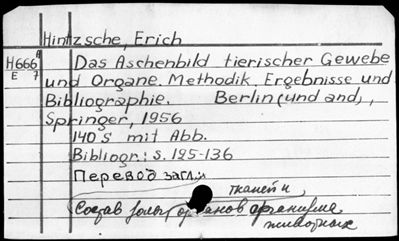 Hintzsche, Erich
H666 A
E 7
Das Aschenbild tierischer Gewebe
und Organe. Methodik, Ergebnisse und
Bibliographie. Berlin (und and),
Springer, 1956
140 S mit Abb.
Bibliogr.: S. 125-136
Перевод загл.:
тканей и
Состав золы органов
животных